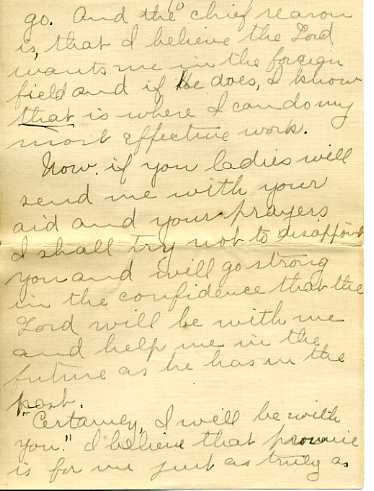 go. And the chief reason
is, that I believe the Lord
wants me in the foreign
field and if He does, I know
that is where I can do my
most effective work.
Now if you ladies will
send me with your
aid and your prayers
I shall try not to disappoint
you and will go strong
in the confidence that the
Lord will be with me
and help me in the
future as he has in the
past.
"Certainly, I will be with
you." I believe that promise
is for me just as truly as